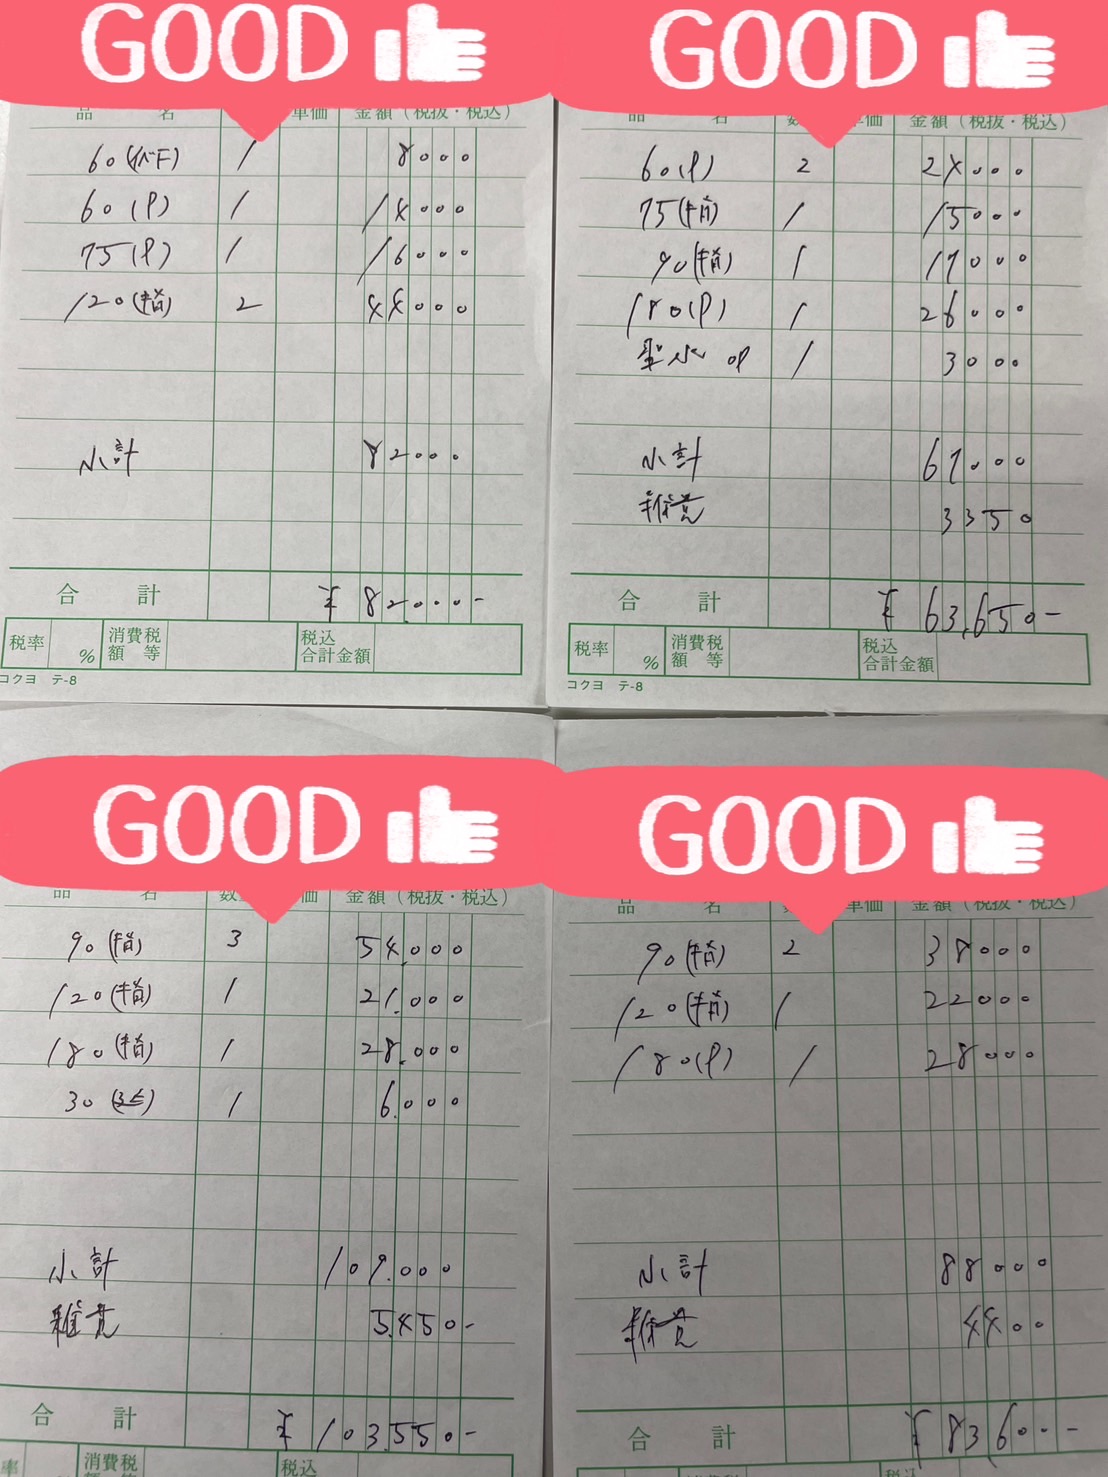 GOOD
品 名 単価 金額（税抜・税込）
60(イベF) 1 8000
60(P) 1 14000
75(P) 1 16000
120(指) 2 44000
小計 82000
合計 ¥82000-
税率 % 消費税額等 税込合計金額
コクヨ テ-8
GOOD
品 名 数 単価 金額（税抜・税込）
60(P) 2 24000
75(指) 1 15000
90(指) 1 17000
180(P) 1 26000
OP 1 3000
小計 67000
雑費 3350
合計 ¥63,650-
税率 % 消費税額等 税込合計金額
コクヨ テ-8
GOOD
品 名 数 価 金額（税抜・税込）
90(指) 3 54,000
120(指) 1 21,000
180(指) 1 28,000
30 1 6,000
小計 109,000
雑費 5,450-
合計 ¥103,550-
率 消費税 税込
GOOD
品 名 単価 金額（税抜・税込）
90(指) 2 38000
120(指) 1 22000
180(P) 1 28000
小計 88000
雑費 4400
合計 ¥83,600-